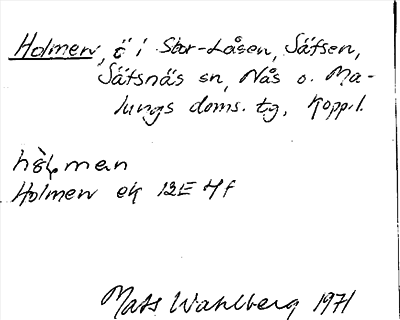 Holmen, ö i Stor-Låsen, Säfsen,
Säfsnäs sn, Nås o. Ma-
lungs doms. tg, Kopp. l.
Holmen ek 12E 4f
Mats Wahlberg 1971